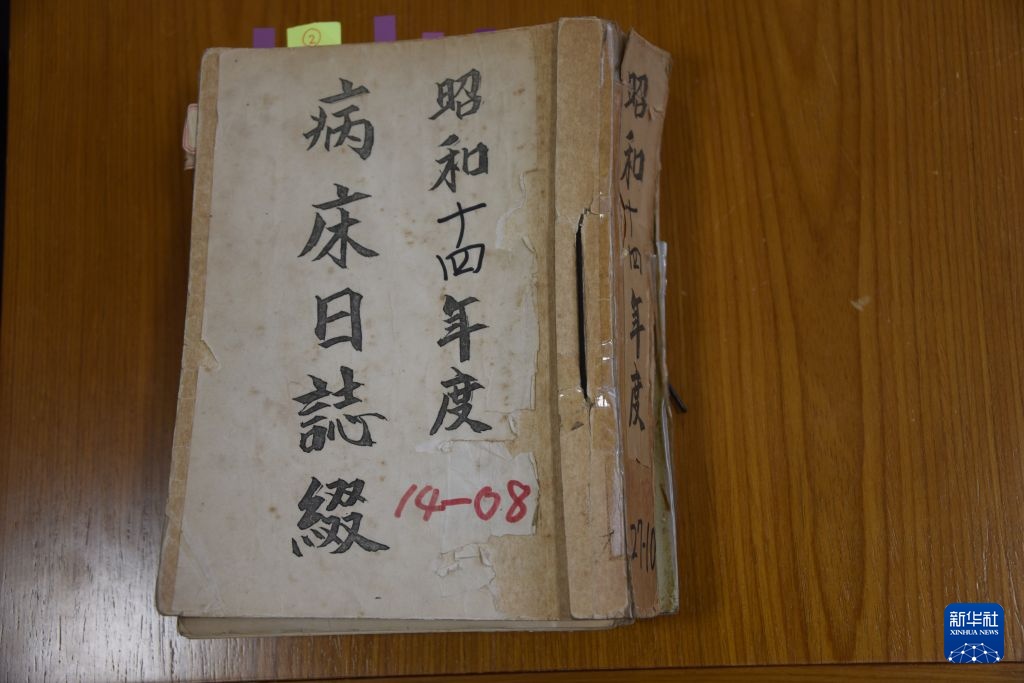 ②
昭和十四年度
病床日誌綴
14-08
昭和十四年度
27.10
新华社
XINHUA NEWS